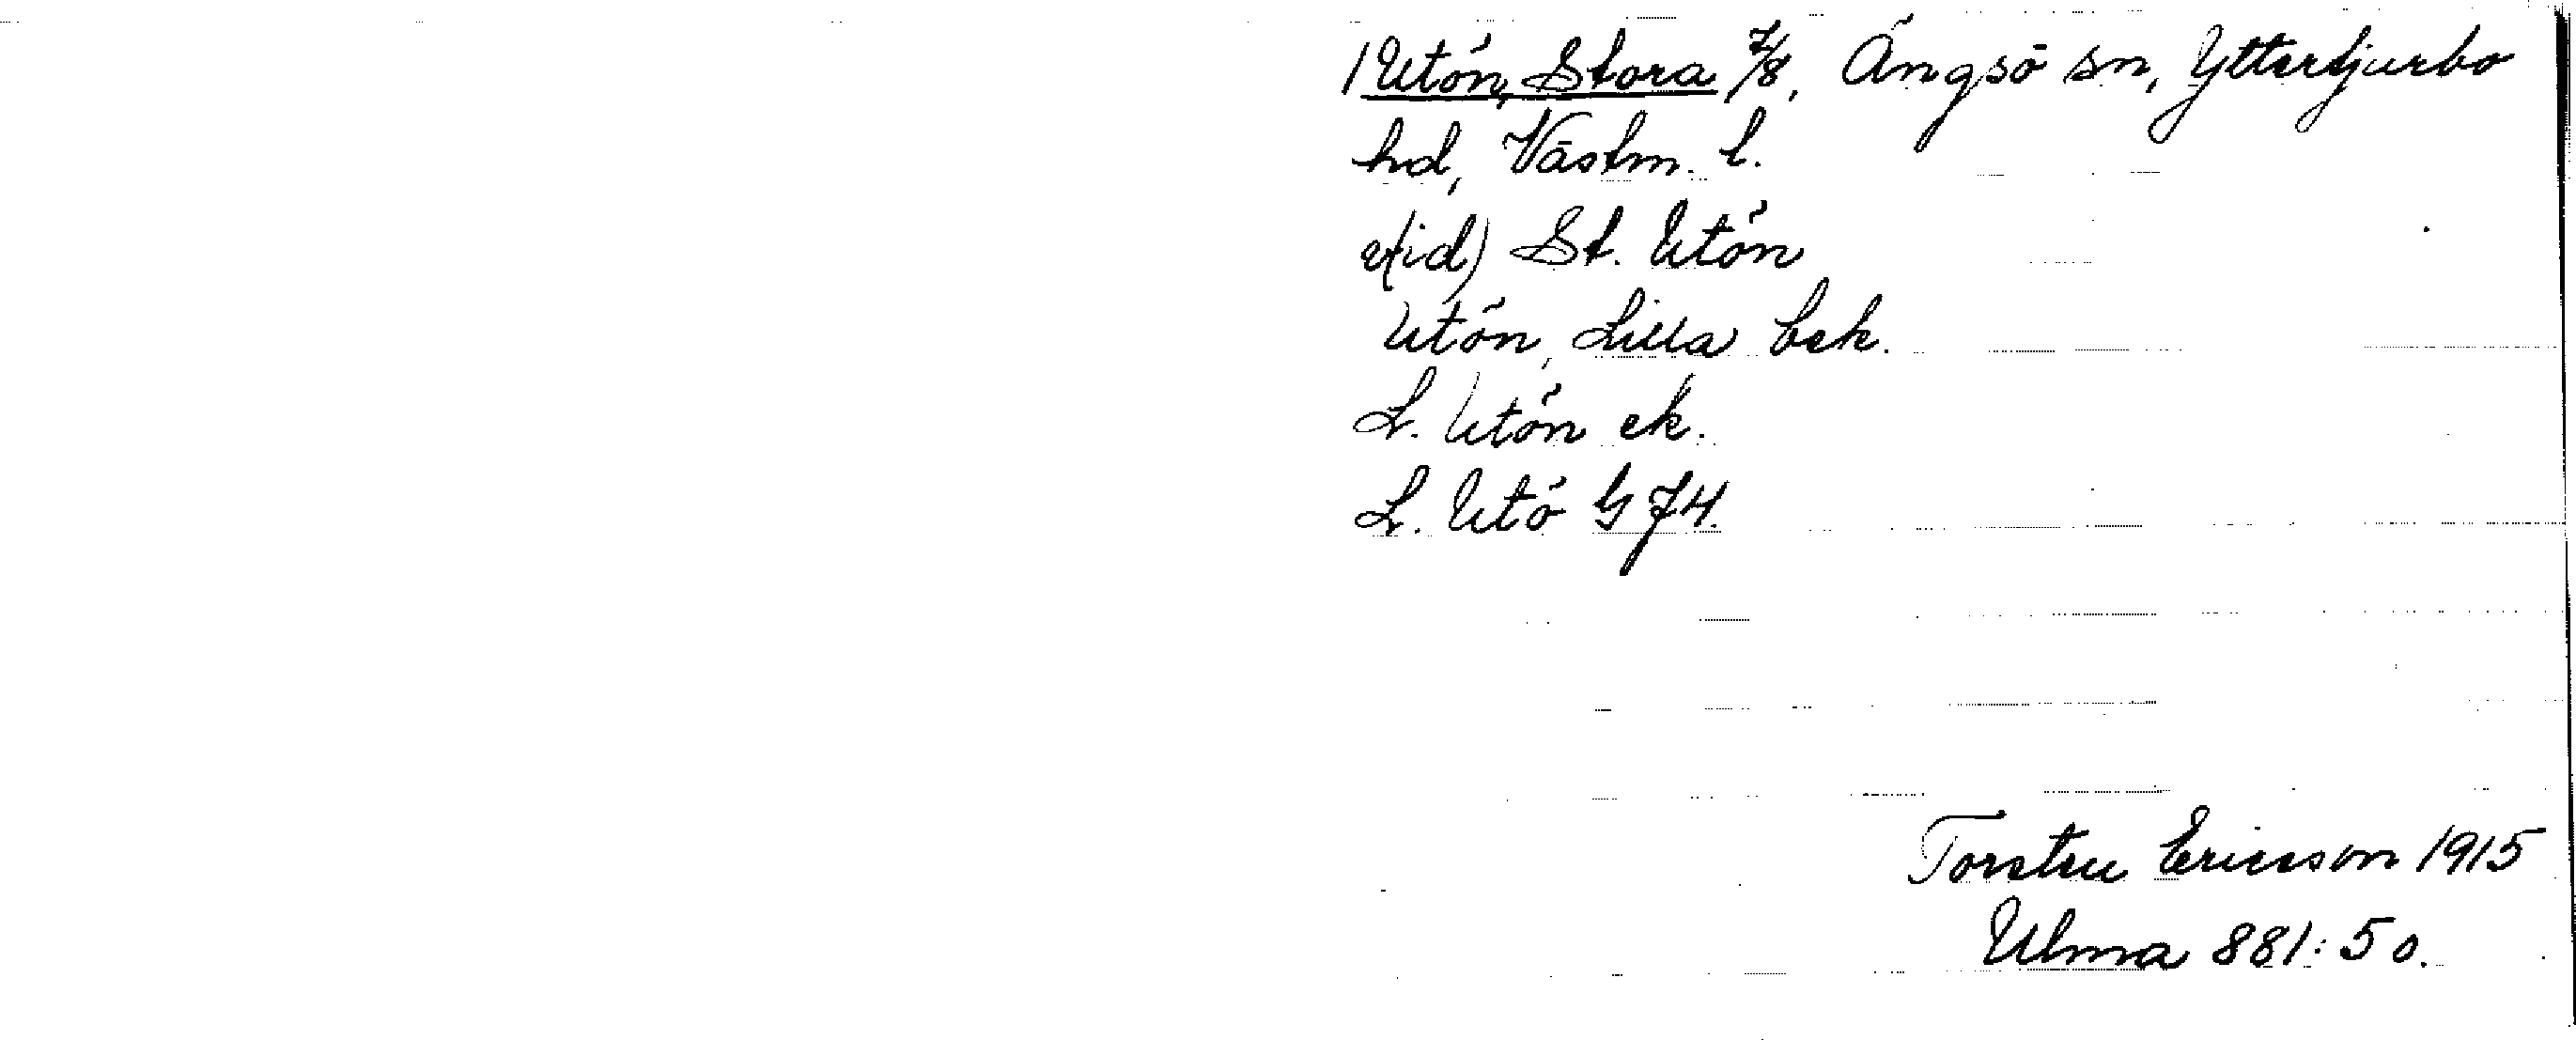 1 Utön, Stora 7/8, Ängsö sn, Yttertjurbo
hd, Västm. l.
v(id) St. Utön
Utön, Lilla bek.
L. Utön ek.
L. Utö G 74.
Torsten Ericsson 1915
Ulma 881:50.